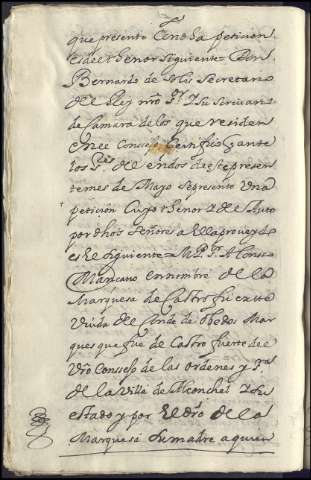 que presento Cendha peticion
es del thenor siguiente = Don
Bernardo de Solis Secretario
del Rey nro Sr. y su scrivano
de Camara de los que residen
en el Consejo Certifico q ante
los Sres. del en dos de este presen
te mes de Mayo se presento una
peticion Cuyo thenor y de el Auto
por dhos Señores a ella proveydo
es el siguiente = M. P. Sr. Alonso
Mançano en nombre de la
Marquesa de Castro fuerte
Viuda del Conde de Rodos Mar
ques que fue de Castro fuerte de
vro Consejo de las ordenes y Sra.
de la Villa de Alconchel y su
estado y por el dro de la
Marquesa su madre a quien